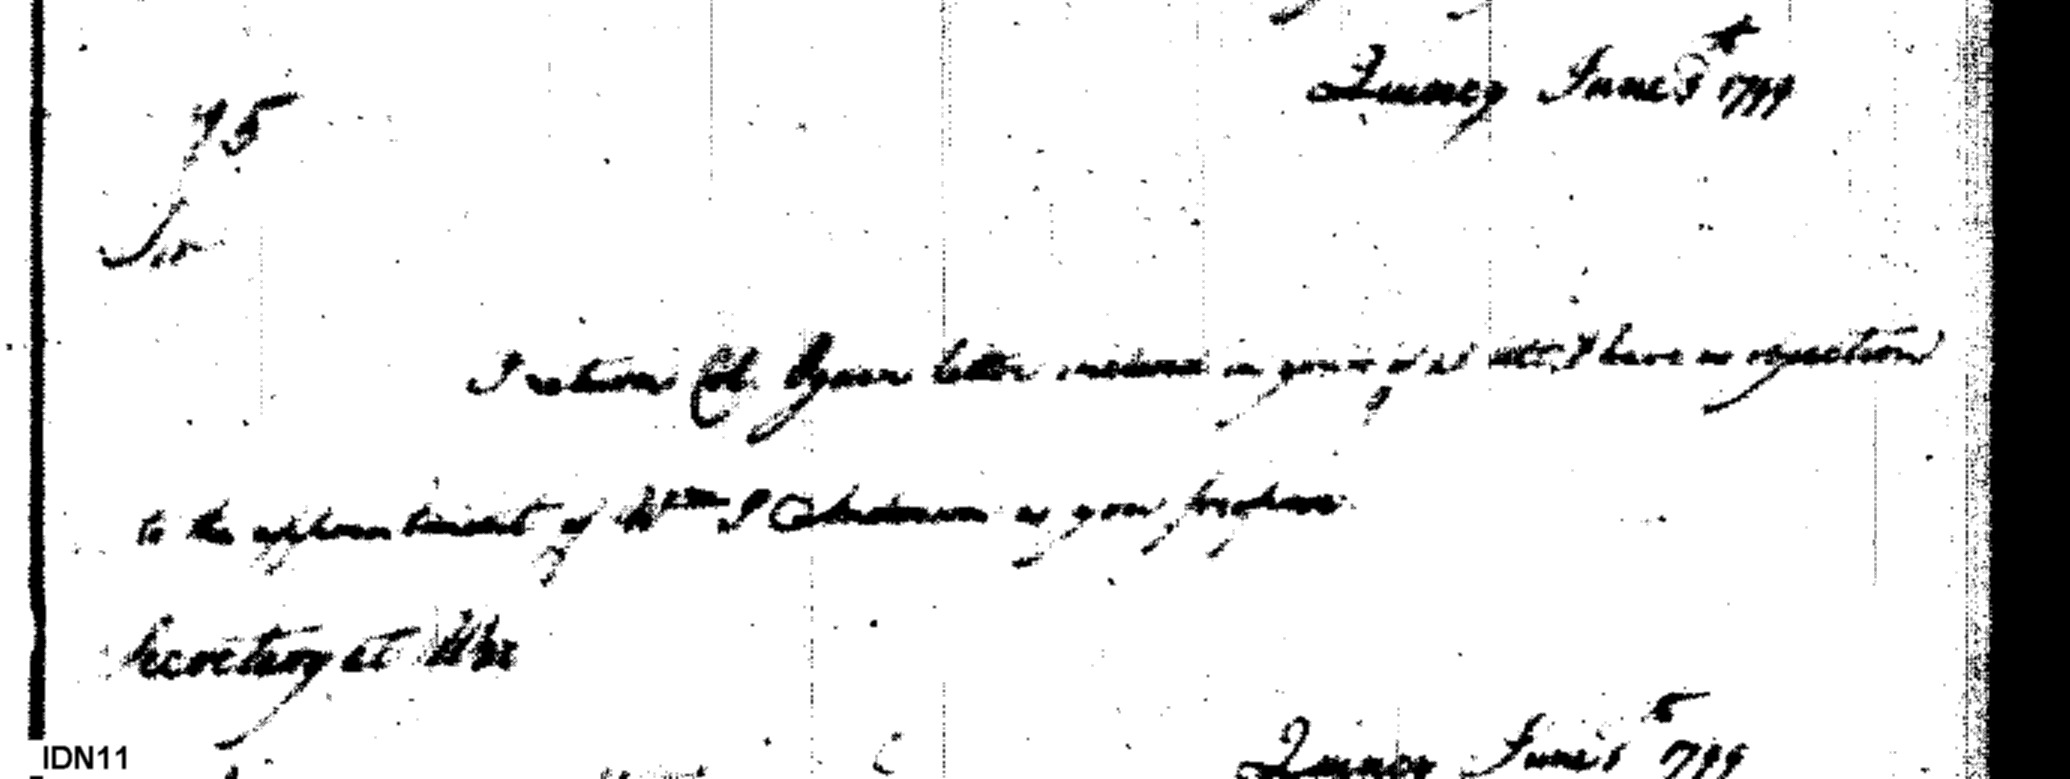 Quincy June 8th 1799
75
Sir
I return Col. letter inclosed in yours of I have no objection
to the appointment of Wm I Anderson as you propose
Secretary at War
Quincy June 1799
IDN11